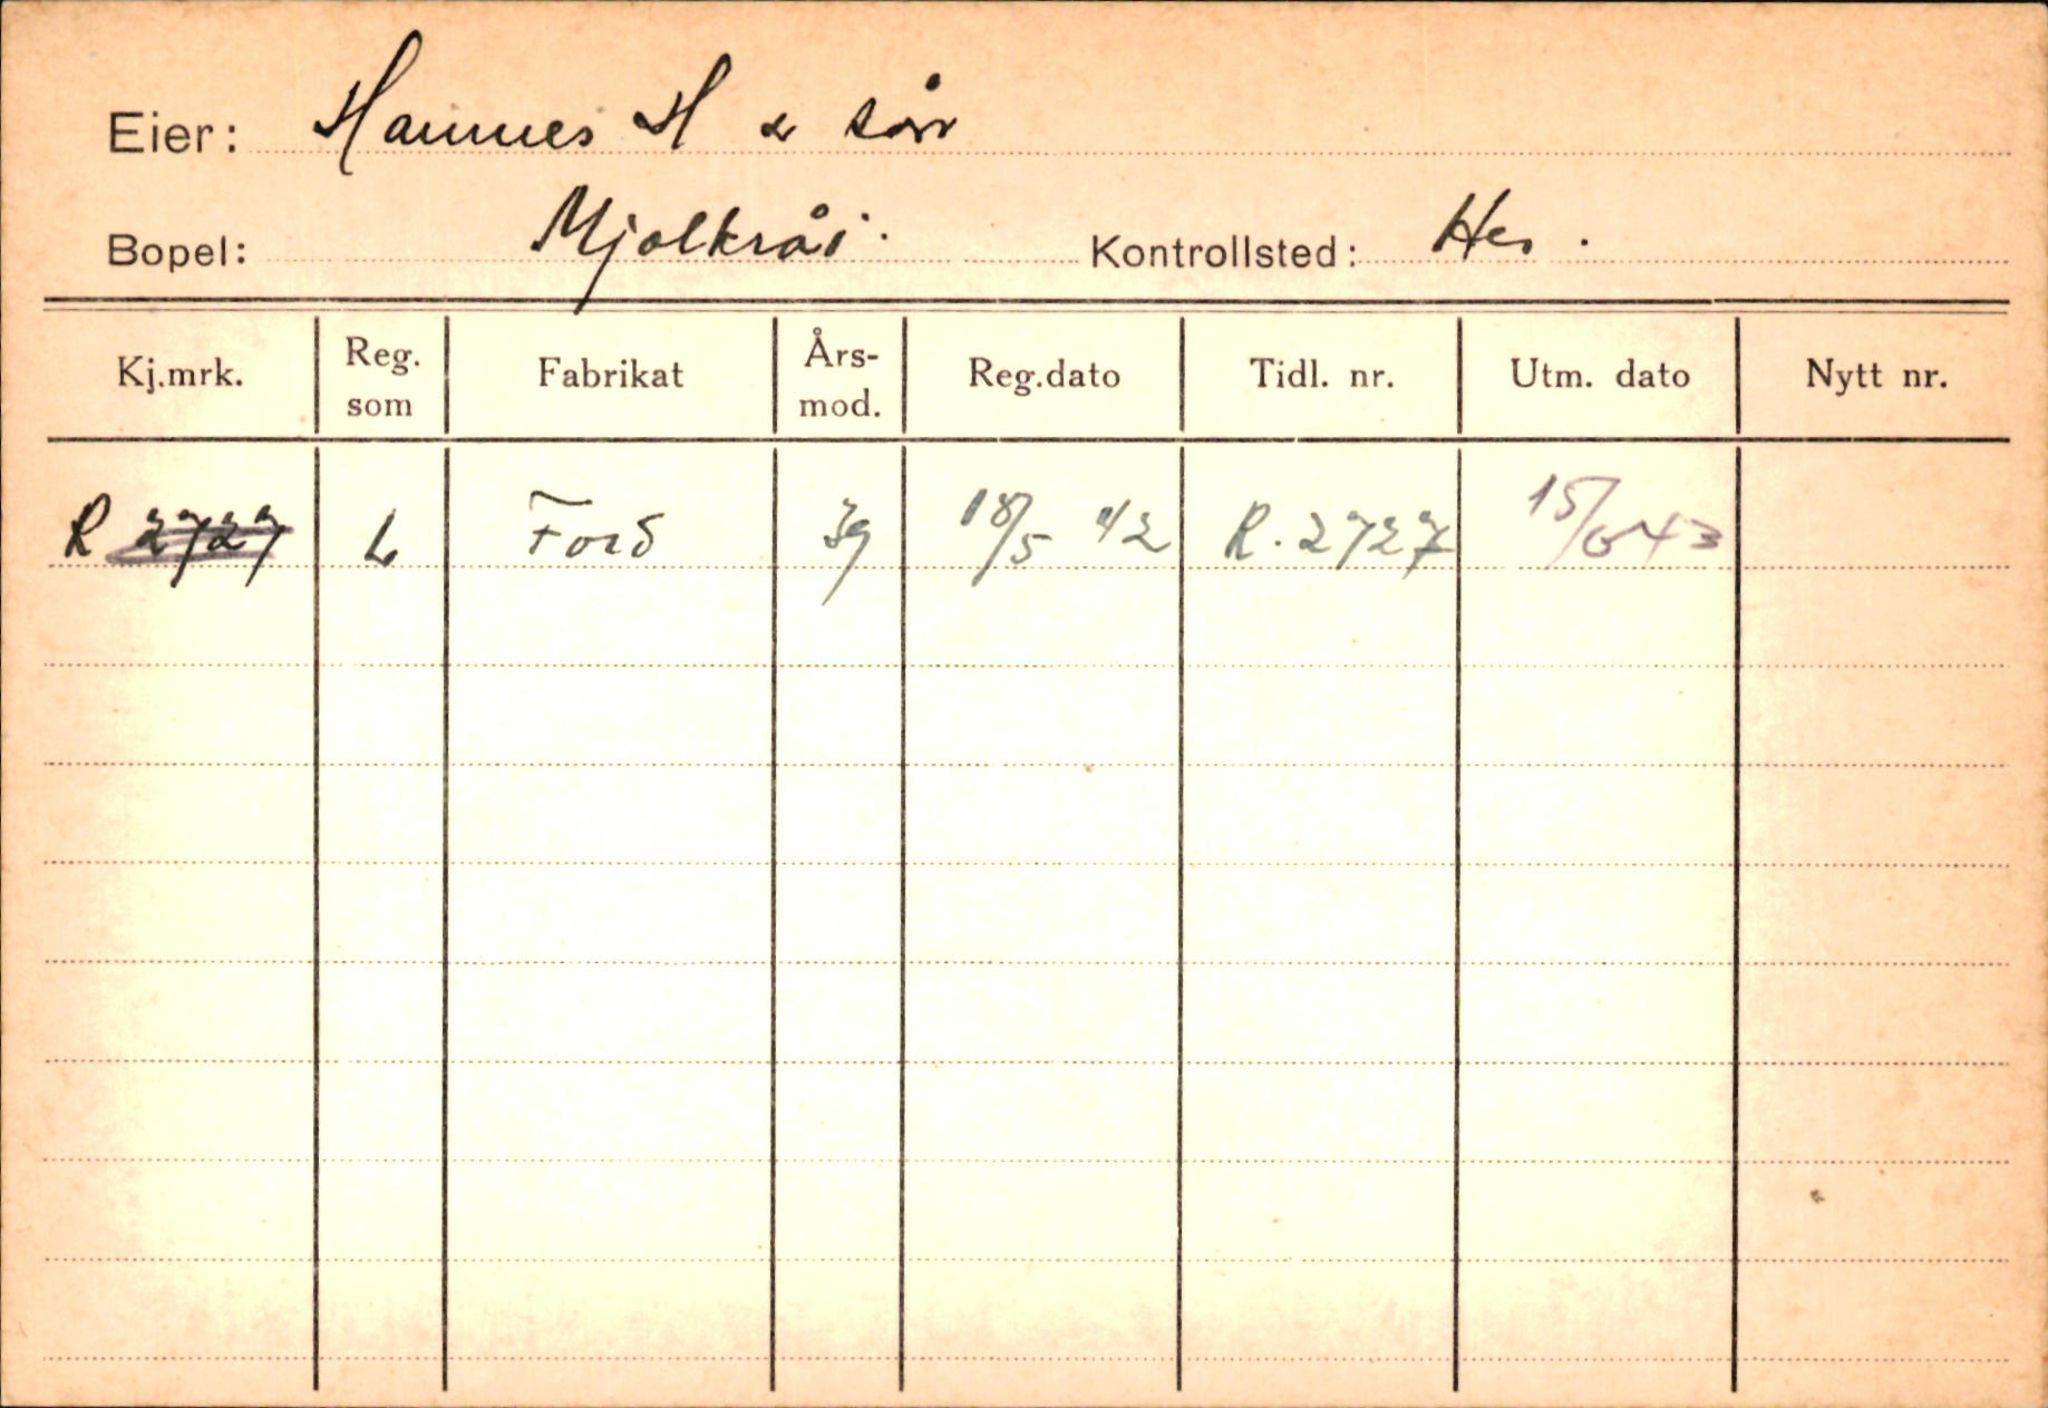 Eier: Hannes H & sön
Bopel: Mjolkråi. Kontrollsted: Hes.
Kj.mrk. Reg. som Fabrikat Års-mod. Reg.dato Tidl. nr. Utm. dato Nytt nr.
R 2727 L Ford 39 18/5 42 R. 2727 15/6 43